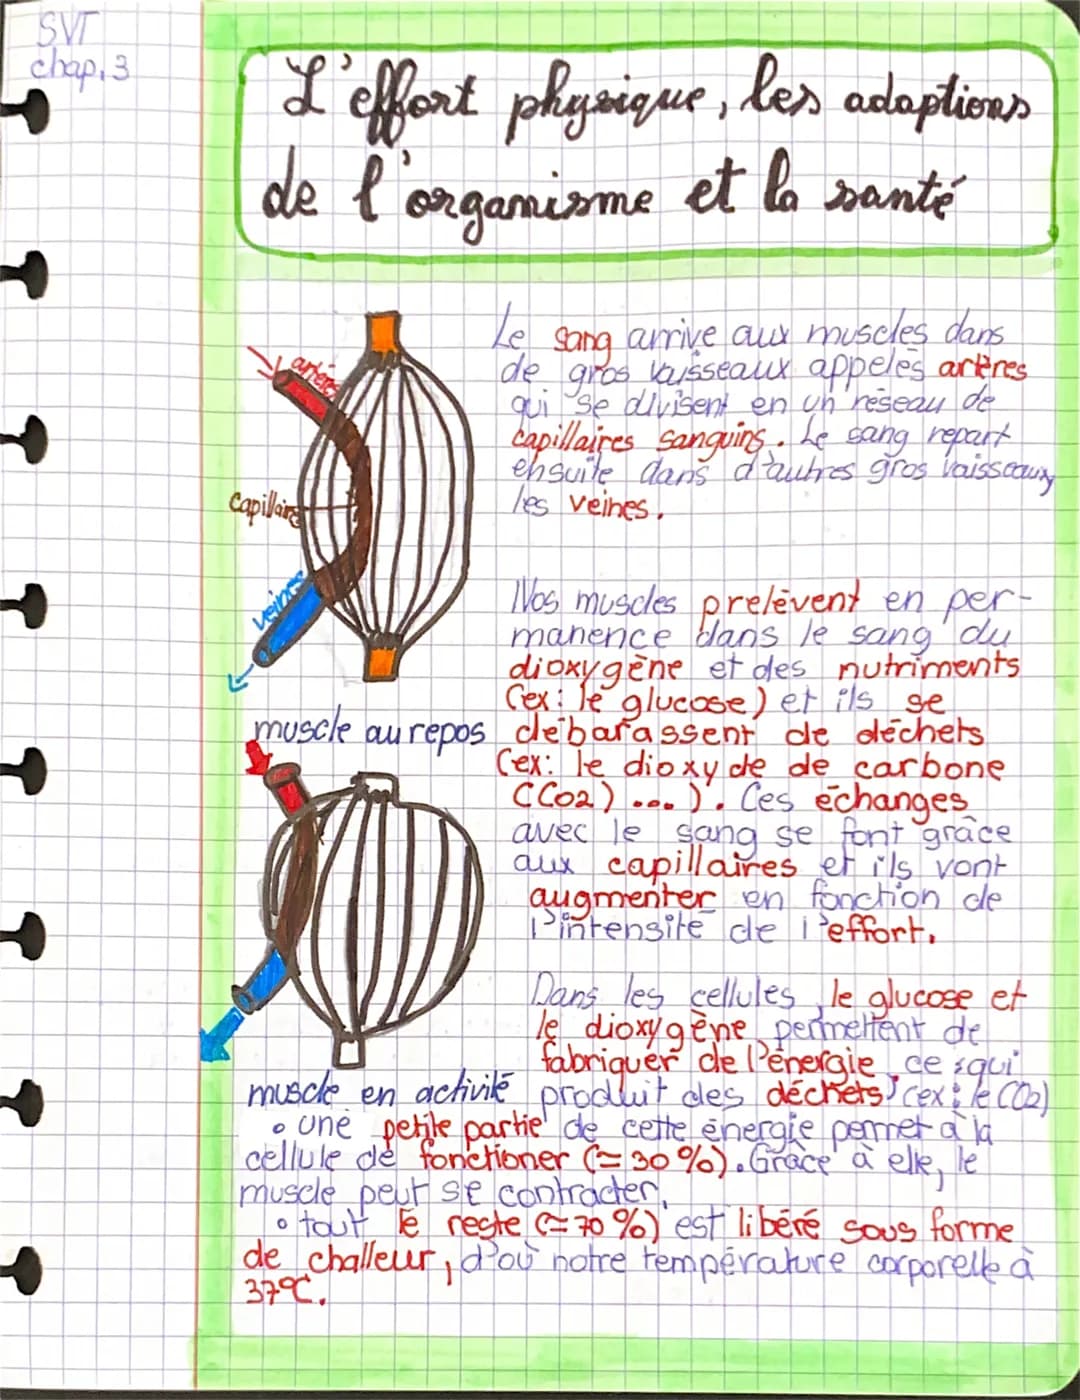 SVT
chap.3
L'effort physique, les adaptions
de l'organisme et la santé
Le sang arrive aux muscles dans
de gros vaisseaux appelés artères
qui se divisent en un réseau de
capillaires sanguins. Le sang repart
ensuite dans d'autres gros vaisseaux,
les veines.
artère
capillaire
veines
muscle au repos
Nos muscles prelèvent en per-
manence dans le sang du
dioxygène et des nutriments
(ex: le glucose) et ils se
débarassent de déchets
(ex: le dioxyde de carbone
(CO2) ...). Ces échanges
avec le sang se font grâce
aux capillaires et ils vont
augmenter en fonction de
l'intensité de l'effort.
muscle en activité
Dans les cellules, le glucose et
le dioxygène permettent de
fabriquer de l'énergie, ce qui
produit des déchets (ex: le CO2)
• une petite partie de cette énergie permet à la
cellule de fonctioner (≃ 30 %). Grâce à elle, le
muscle peut se contracter.
• tout le reste (≃ 70 %) est libéré sous forme
de challeur, d'où notre température corporelle à
37°C.